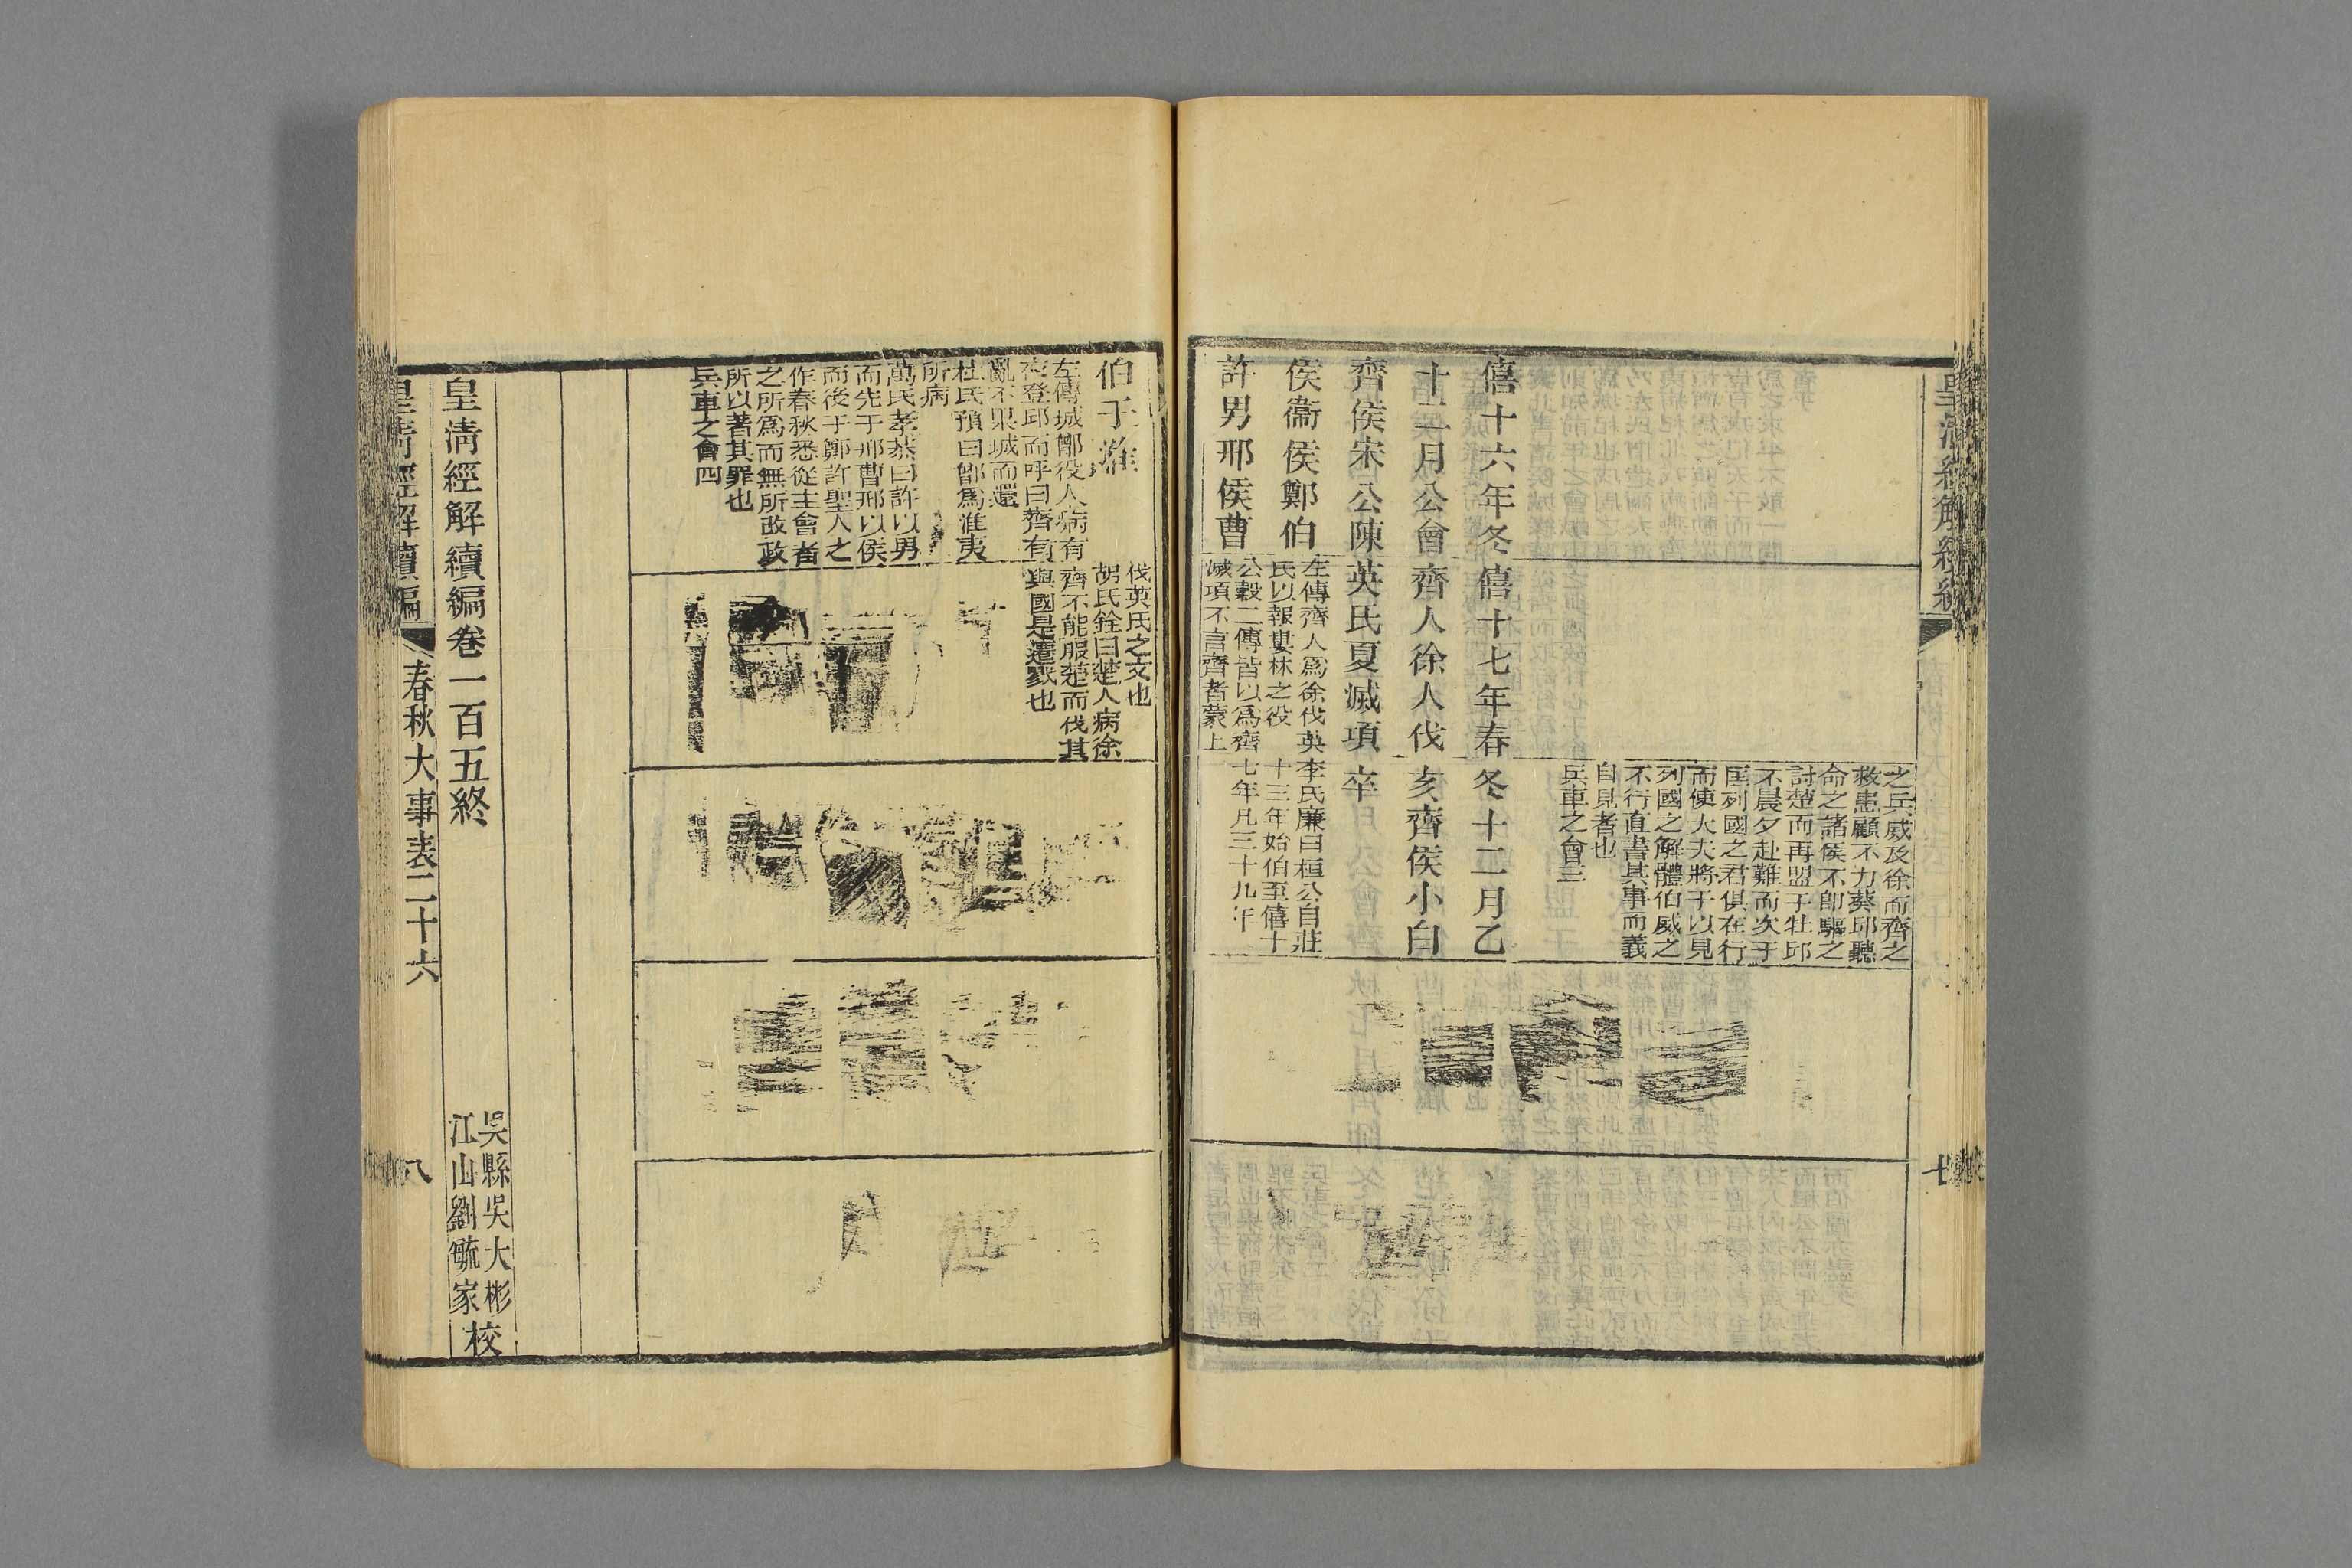 之兵威及徐而齊之
救患顧不力葵邱聽
命之諸侯不卽驅之
討楚而再盟于牡邱
不晨夕赴難而次于
匡列國之君俱在行
而使大夫將于以見
列國之解體伯威之
不行直書其事而義
自見者也
兵車之會三
僖十六年冬
十二月公會
齊侯宋公陳
侯衞侯鄭伯
許男邢侯曹
僖十七年春
齊人徐人伐
英氏夏滅項
左傳齊人爲徐伐英
氏以報婁林之役
公穀二傳皆以爲齊
滅項不言齊者蒙上
冬十二月乙
亥齊侯小白
卒
李氏廉曰桓公自莊
十三年始伯至僖十
七年凡三十九年
伯于淮
左傳城鄫役人病有
夜登邱而呼曰齊有
亂不果城而還
杜氏預曰鄫爲淮夷
所病
萬氏孝恭曰許以男
而先于邢曹邢以侯
而後于鄭許聖人之
作春秋悉從主會者
之所爲而無所改政
所以著其罪也
兵車之會四
伐英氏之文也
胡氏銓曰楚人病徐
齊不能服楚而伐其
與國是遷戮也
皇清經解續編卷一百五終
吳縣吳大彬
江山劉毓家
校
皇清經解續編
春秋大事表二十六
八